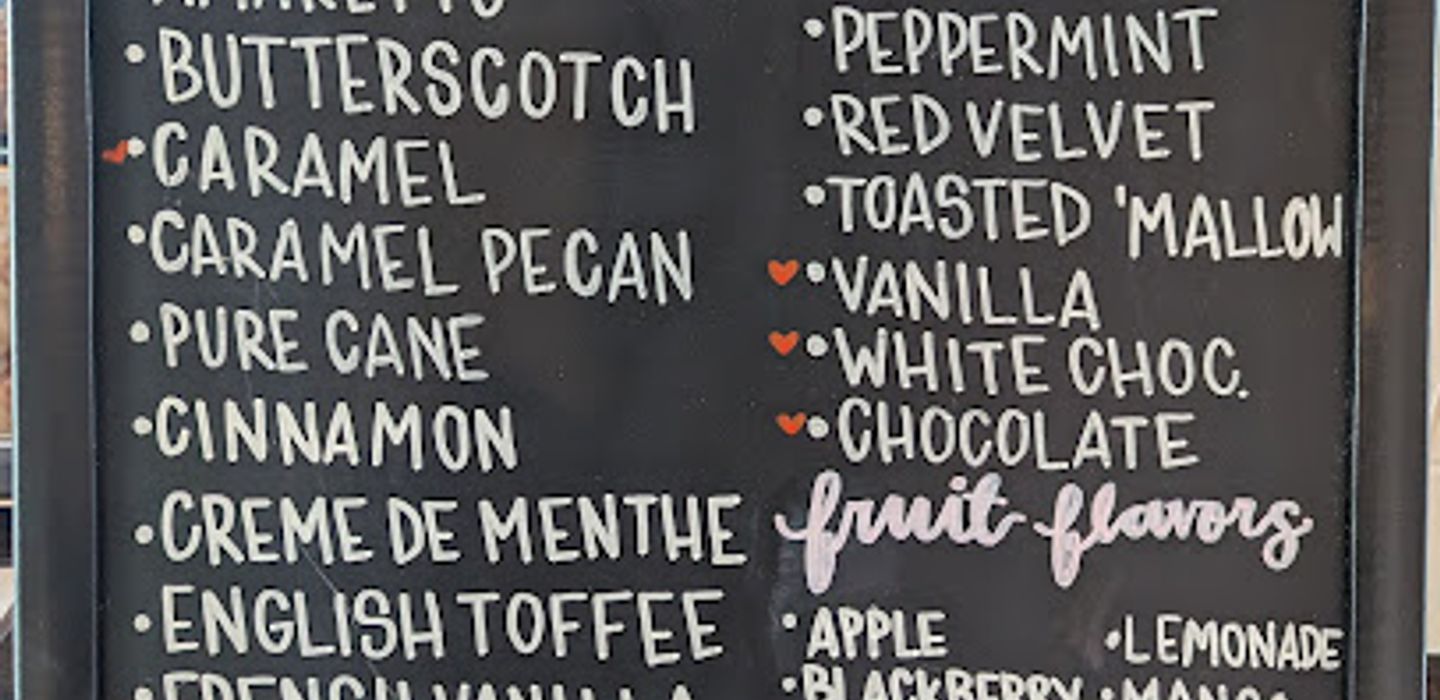 AMARETTO
• BUTTERSCOTCH
• CARAMEL
• CARAMEL PECAN
• PURE CANE
• CINNAMON
• CREME DE MENTHE
• ENGLISH TOFFEE
• FRENCH VANILLA
• PEPPERMINT
• RED VELVET
• TOASTED 'MALLOW
• VANILLA
• WHITE CHOC.
• CHOCOLATE
fruit flavors
• APPLE
• BLACKBERRY
• LEMONADE
• MANGO